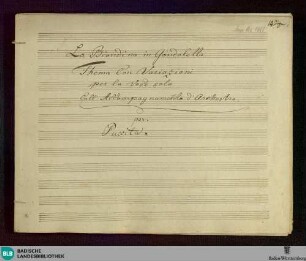 La Biondina in Gondoletta
Thema con Variazioni
per la Voce sola
coll' Accompagnamento d'Orchestra
per
Puccita
BLB
BADISCHE
LANDESBIBLIOTHEK
Baden-Württemberg